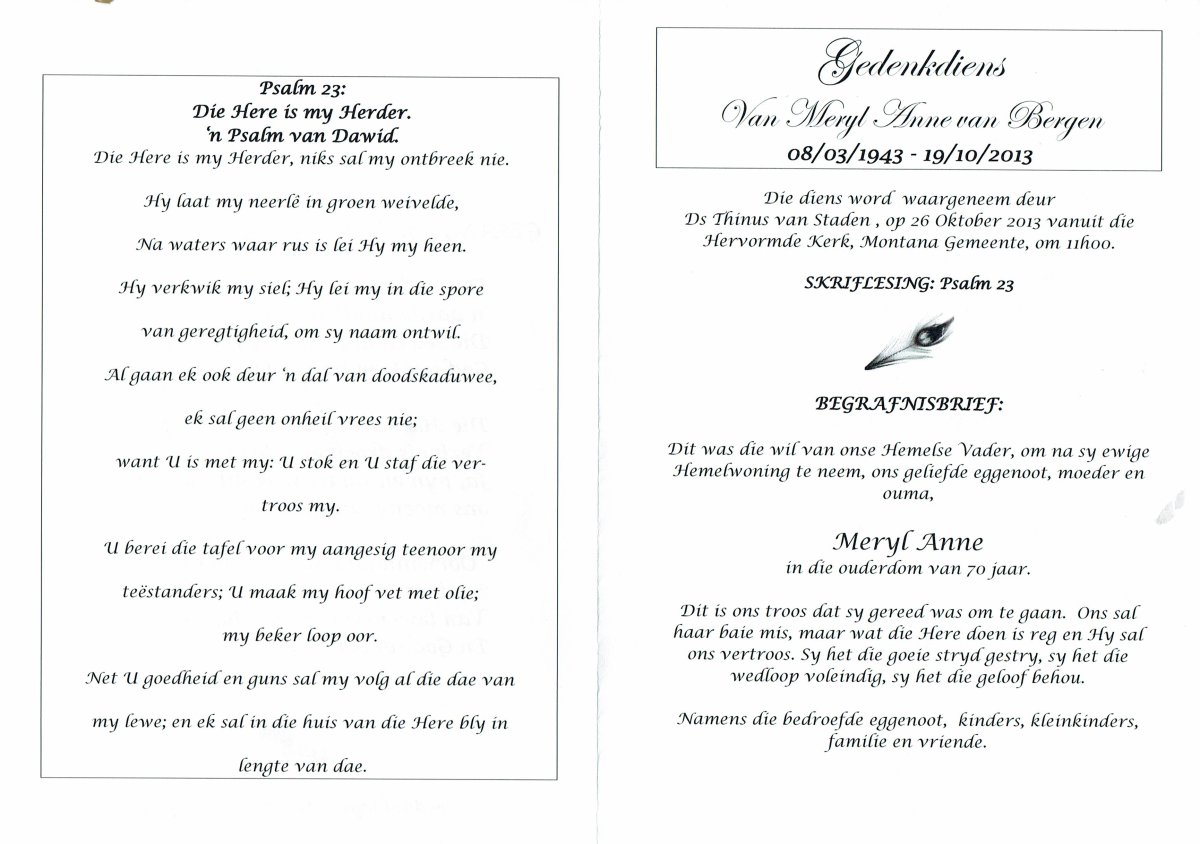 Psalm 23:
Die Here is my Herder.
'n Psalm van Dawid.
Die Here is my Herder, niks sal my ontbreek nie.
Hy laat my neerlê in groen weivelde,
Na waters waar rus is lei Hy my heen.
Hy verkwik my siel; Hy lei my in die spore
van geregtigheid, om sy naam ontwil.
Al gaan ek ook deur 'n dal van doodskaduwee,
ek sal geen onheil vrees nie;
want U is met my: U stok en U staf die ver-
troos my.
U berei die tafel voor my aangesig teenoor my
teëstanders; U maak my hoof vet met olie;
my beker loop oor.
Net U goedheid en guns sal my volg al die dae van
my lewe; en ek sal in die huis van die Here bly in
lengte van dae.
Gedenkdiens
Van Meryl Anne van Bergen
08/03/1943 - 19/10/2013
Die diens word waargeneem deur
Ds Thinus van Staden , op 26 Oktober 2013 vanuit die
Hervormde Kerk, Montana Gemeente, om 11h00.
SKRIFLESING: Psalm 23
BEGRAFNISBRIEF:
Dit was die wil van onse Hemelse Vader, om na sy ewige
Hemelwoning te neem, ons geliefde eggenoot, moeder en
ouma,
Meryl Anne
in die ouderdom van 70 jaar.
Dit is ons troos dat sy gereed was om te gaan. Ons sal
haar baie mis, maar wat die Here doen is reg en Hy sal
ons vertroos. Sy het die goeie stryd gestry, sy het die
wedloop voleindig, sy het die geloof behou.
Namens die bedroefde eggenoot, kinders, kleinkinders,
familie en vriende.